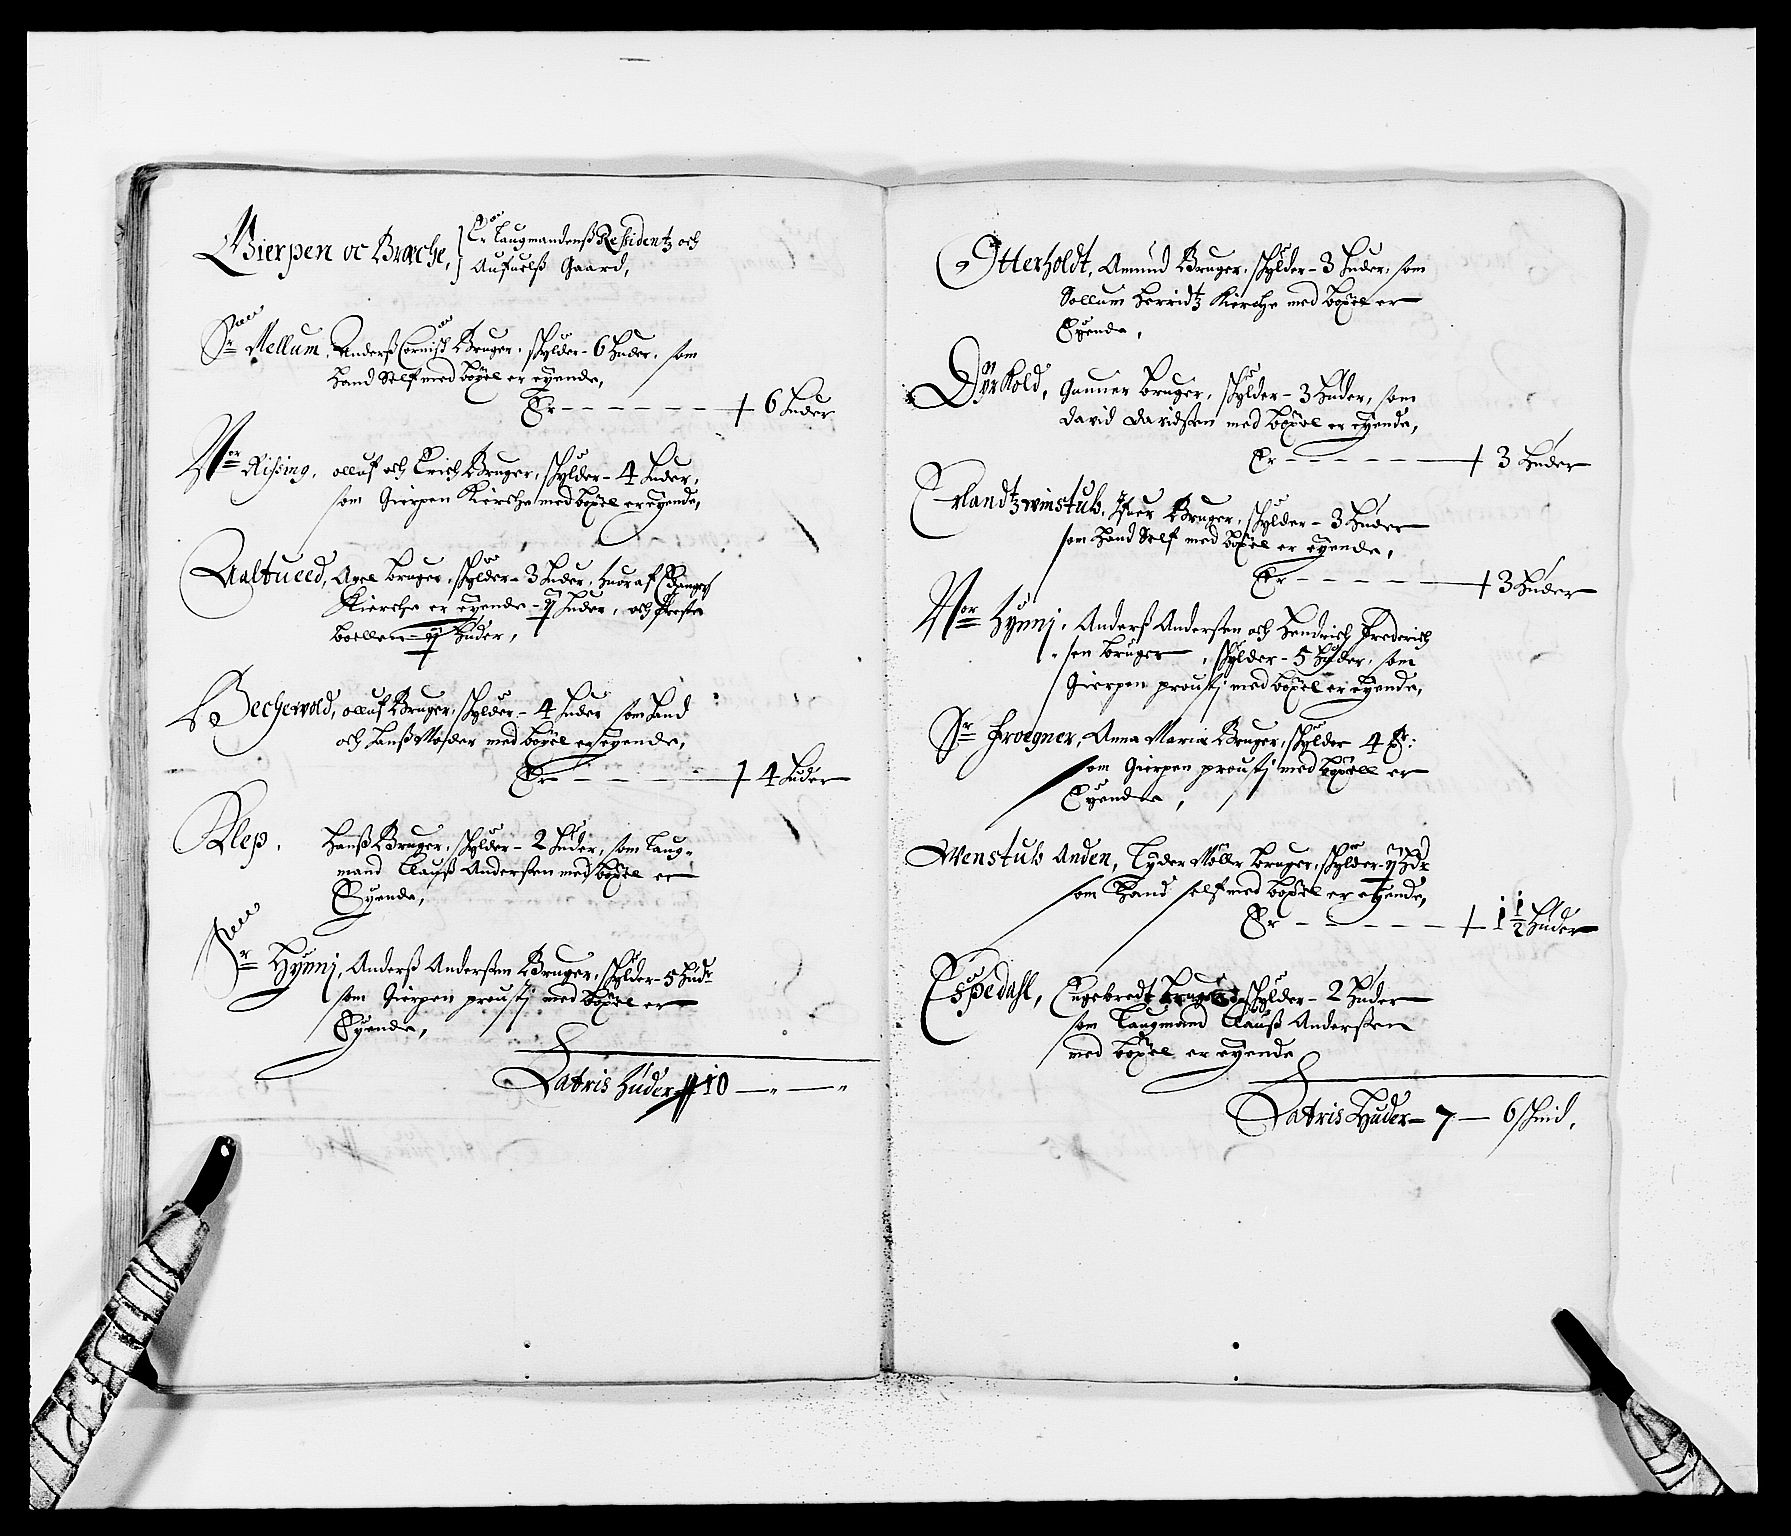 Gierpen oc Brache, } Er Laugmandenß Residentz och
Aufuelß Gaard,
Sr Mellum, Anderß Cornisch Bruger, schylder - 6 huder, som
hand Self med böxel er eyende,
Er - - - - - - + 6 huder
Nor Rising, olluf och Erich Bruger, schylder - 4 huder,
som Gierpen Kierche med böxel er eyende,
Aaltueed, Axel bruger, schylder - 3 huder, huoraf
Kierche er eyende - huder, och Preste
boellen - huder,
Bechewold, olluf Bruger, schylder - 4 huder som hand
och hanß Moder med böxel er eyende,
Er - - - - - + 4 huder
Klep, hanß Bruger, schylder - 2 huder, som Laug-
mand Clauß Andersen med böxel er
Eyende,
Sr Hynni, Anderß Andersen Bruger, schylder - 5 hudr
som Gierpen proustj med böxel er
Eyende,
Latris huder 10 — " — "
Otterholdt, Amund Bruger, schylder - 3 huder, som
Sollum herridtz Kierche med böxel er
Eyende,
Dyrkold, Gunner bruger, schylder - 3 huder, som
David Davidsen med böxel er eyende,
Er - - - - - + 3 huder
Erlandtzwinstub, Bruger, schylder - 3 huder
som hand Self med böxel er eyende,
Er - - - - - + 3 huder
Nor Hynni, Anderß Andersen och Hendrich Frederich
-sen bruger, schylder - 5 huder, som
Gierpen proustj med böxel er eyende,
Sr Frogner, Anna Maria Bruger, schylder 4
som Gierpen proustj med böxell er
Eyendee,
Wenstub Anden, Tyder Möller bruger, schylder - hudr
som hand self med böxel er eyende,
Er - - - - - + 1 1/2 huder
Espedahl, Engebredt bruger schylder - 2 huder
som Laugmand Clauß Andersen
med böxel er eyende
Latris Huder - 7 — 6 schind,